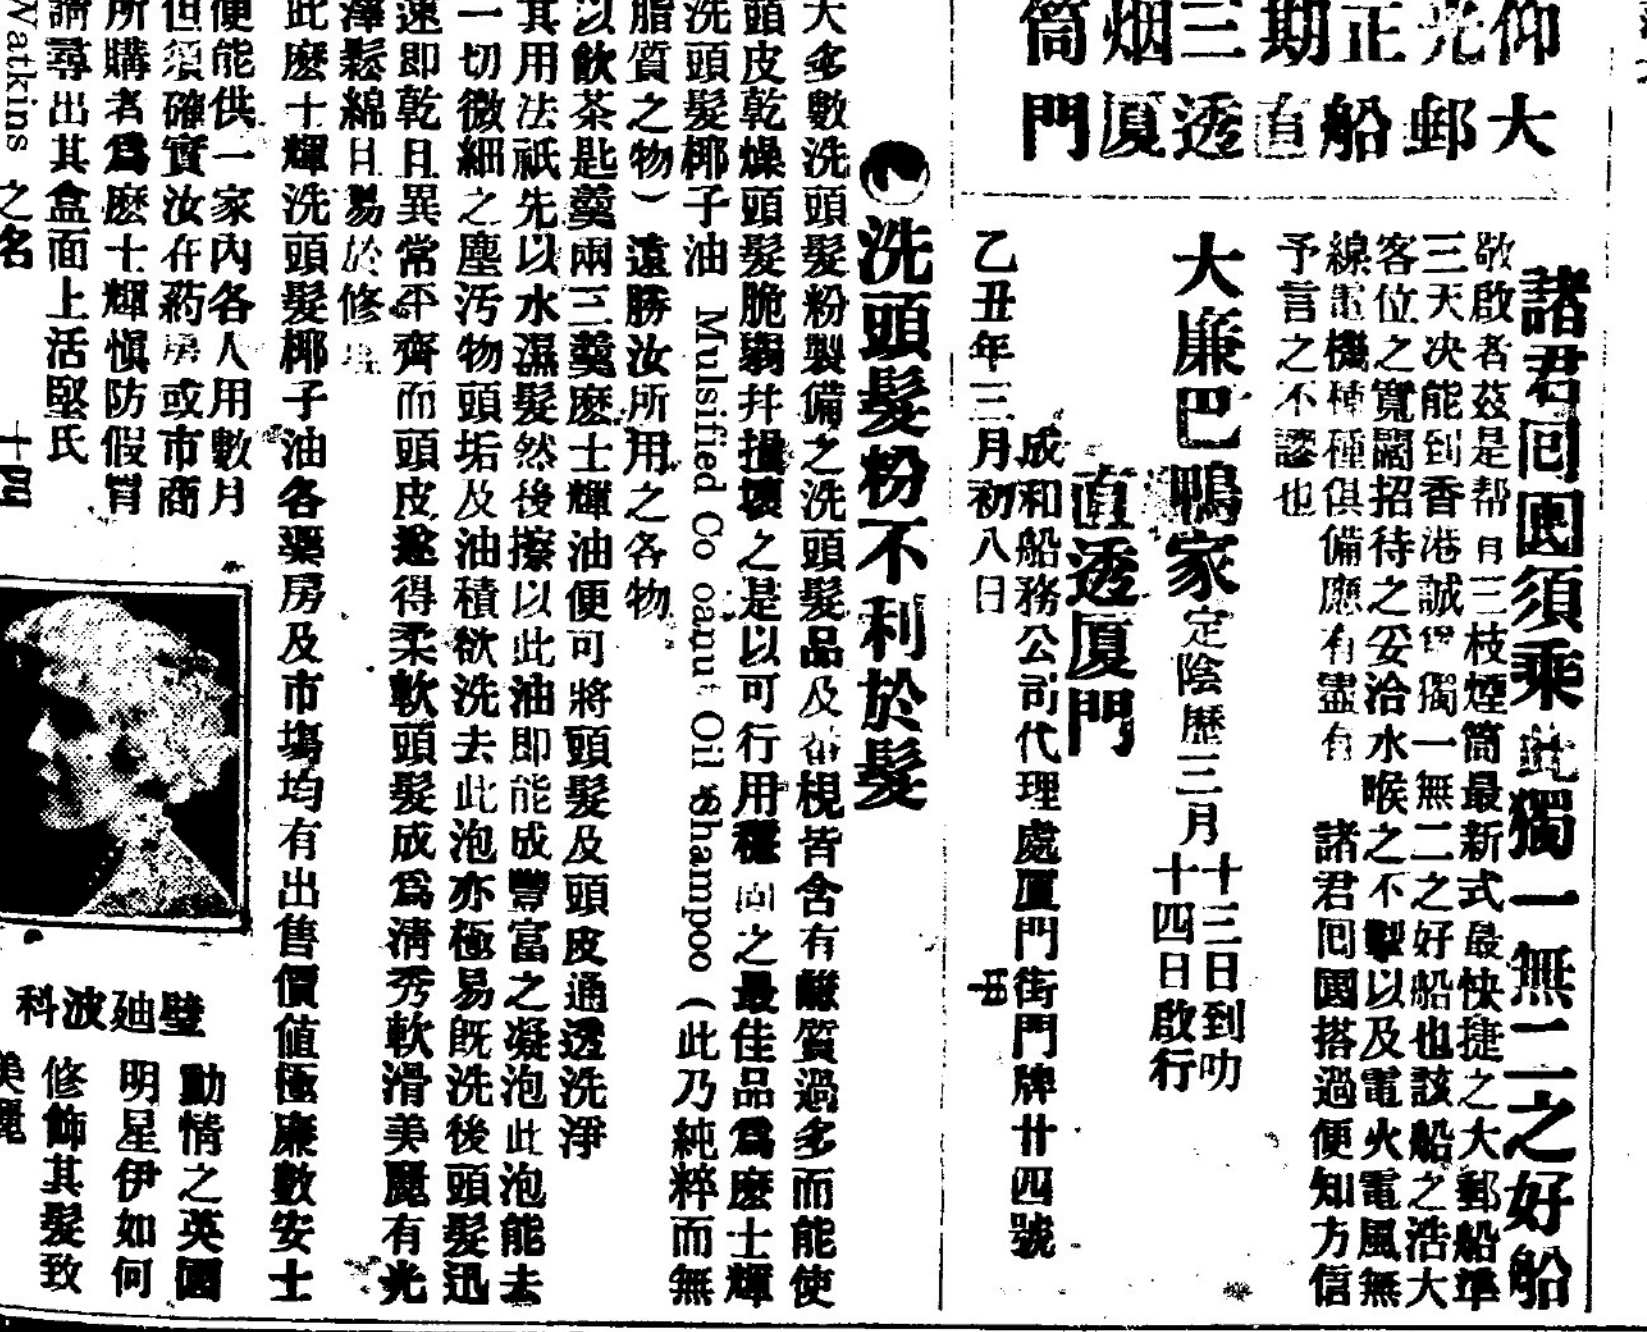 仰光正期三烟筒
大郵船直透厦門
諸君囘國須乘此獨一無二之好船
敬啟者茲是帮 有三枝煙筒最新式最快捷之大郵船準
三天決能到香港誠 獨一無二之好船也該船之浩大
客位之寬闊招待之妥洽水喉之不掣以及電火電風無
線電機種種俱備應有盡有 諸君囘國搭過便知方信
予言之不謬也
大廉巴鴨家定陰歷三月
十三日到叻
十四日啟行
直透厦門
成和船務公司代理處厦門街門牌廿四號
乙丑年三月初八日
洗頭髮粉不利於髮
大多數洗頭髮粉製備之洗頭髮品及番梘皆含有鹻質過多而能使
頭皮乾燥頭髮脆弱幷損壞之是以可行用穩向之最佳品爲麽士輝
洗頭髮椰子油 Mulsified Cocoanut Oil Shampoo（此乃純粹而無
脂質之物）遠勝汝所用之各物
以飲茶匙羹兩三羹麽士輝油便可將頭髮及頭皮通透洗淨
其用法祇先以水濕髮然後擦以此油即能成豐富之凝泡此泡能去
一切微細之塵汚物頭垢及油積欲洗去此泡亦極易既洗後頭髮迅
速即乾且異常平齊而頭皮遂得柔軟頭髮成爲清秀軟滑美麗有光
澤鬆綿且易於修
此麽士輝洗頭髮椰子油各藥房及市塲均有出售價值極廉數安士
便能供一家內各人用數月
但須確實汝在葯房或市商
所購者爲麽士輝愼防假冐
請尋出其盒面上活堅氏
Watkins 之名
十四
璧廸波科
動情之英國
明星伊如何
修飾其髮致
美麗